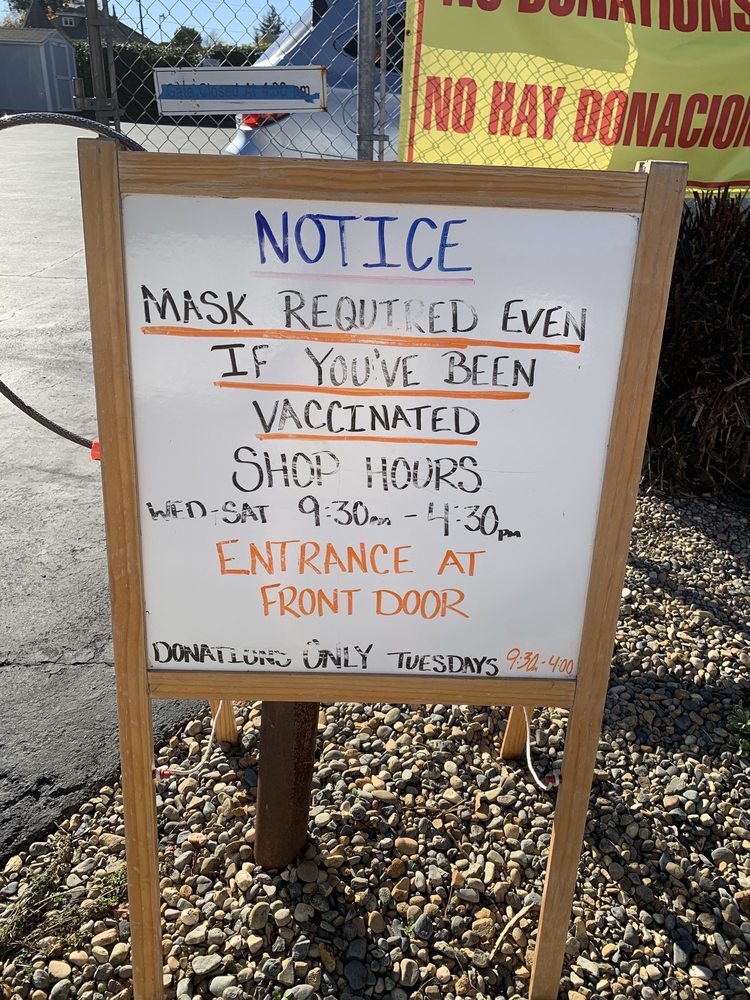 NO DONATIONS
Gate Closed At 4:30 pm
NO HAY DONACIO
NOTICE
MASK REQUIRED EVEN
IF YOU'VE BEEN
VACCINATED
SHOP HOURS
WED-SAT 9:30am - 4:30pm
ENTRANCE AT
FRONT DOOR
DONATIONS ONLY TUESDAYS 9:30-4:00